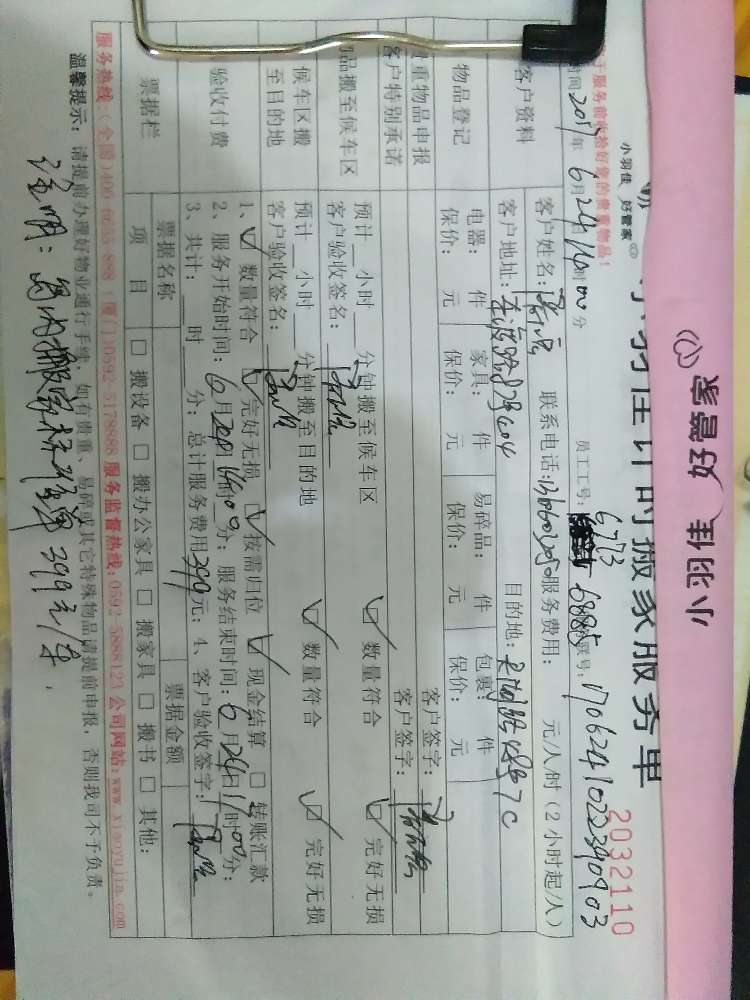 小羽佳 好管家
小羽佳 好管家
小羽佳计时搬家服务单
2032110
于服务前收拾好您的贵重物品！
时间：2017年6月24日14时00分 员工工号：6773 6885 联号：1706241022390903
客户资料
客户姓名： 联系电话： 服务费用： 元/人/时（2小时起/人）
客户地址： 目的地：
物品登记
电器： 件 家具： 件 易碎品： 件 包裹： 件
保价： 元 保价： 元 保价： 元 保价： 元
贵重物品申报 客户签字：
客户特别承诺 客户签字：
物品搬至候车区
预计 小时 分钟搬至候车区 数量符合 完好无损
客户验收签名：
候车区搬至目的地
预计 小时 分钟搬至目的地 数量符合 完好无损
客户验收签名：
验收付费
1、 数量符合 完好无损 按需归位 现金结算 转账汇款
2、服务开始时间：6月24日14时00分；服务结束时间：6月24日17时00分；
3、共计： 时 分；总计服务费用399元；4、客户验收签字：
票据栏
票据名称 票据金额
项目 搬设备 搬办公家具 搬家具 搬书 其他：
服务热线：（全国）400 （厦门）0592-5178888 服务监督热线：0592-5888123 公司网站：www.xiaoyujia.com
温馨提示：请提前办理好物业通行手续，如有贵重、易碎或其它特殊物品请提前申报，否则我司不予负责。
注明：岛内搬家标准单 399元/车.